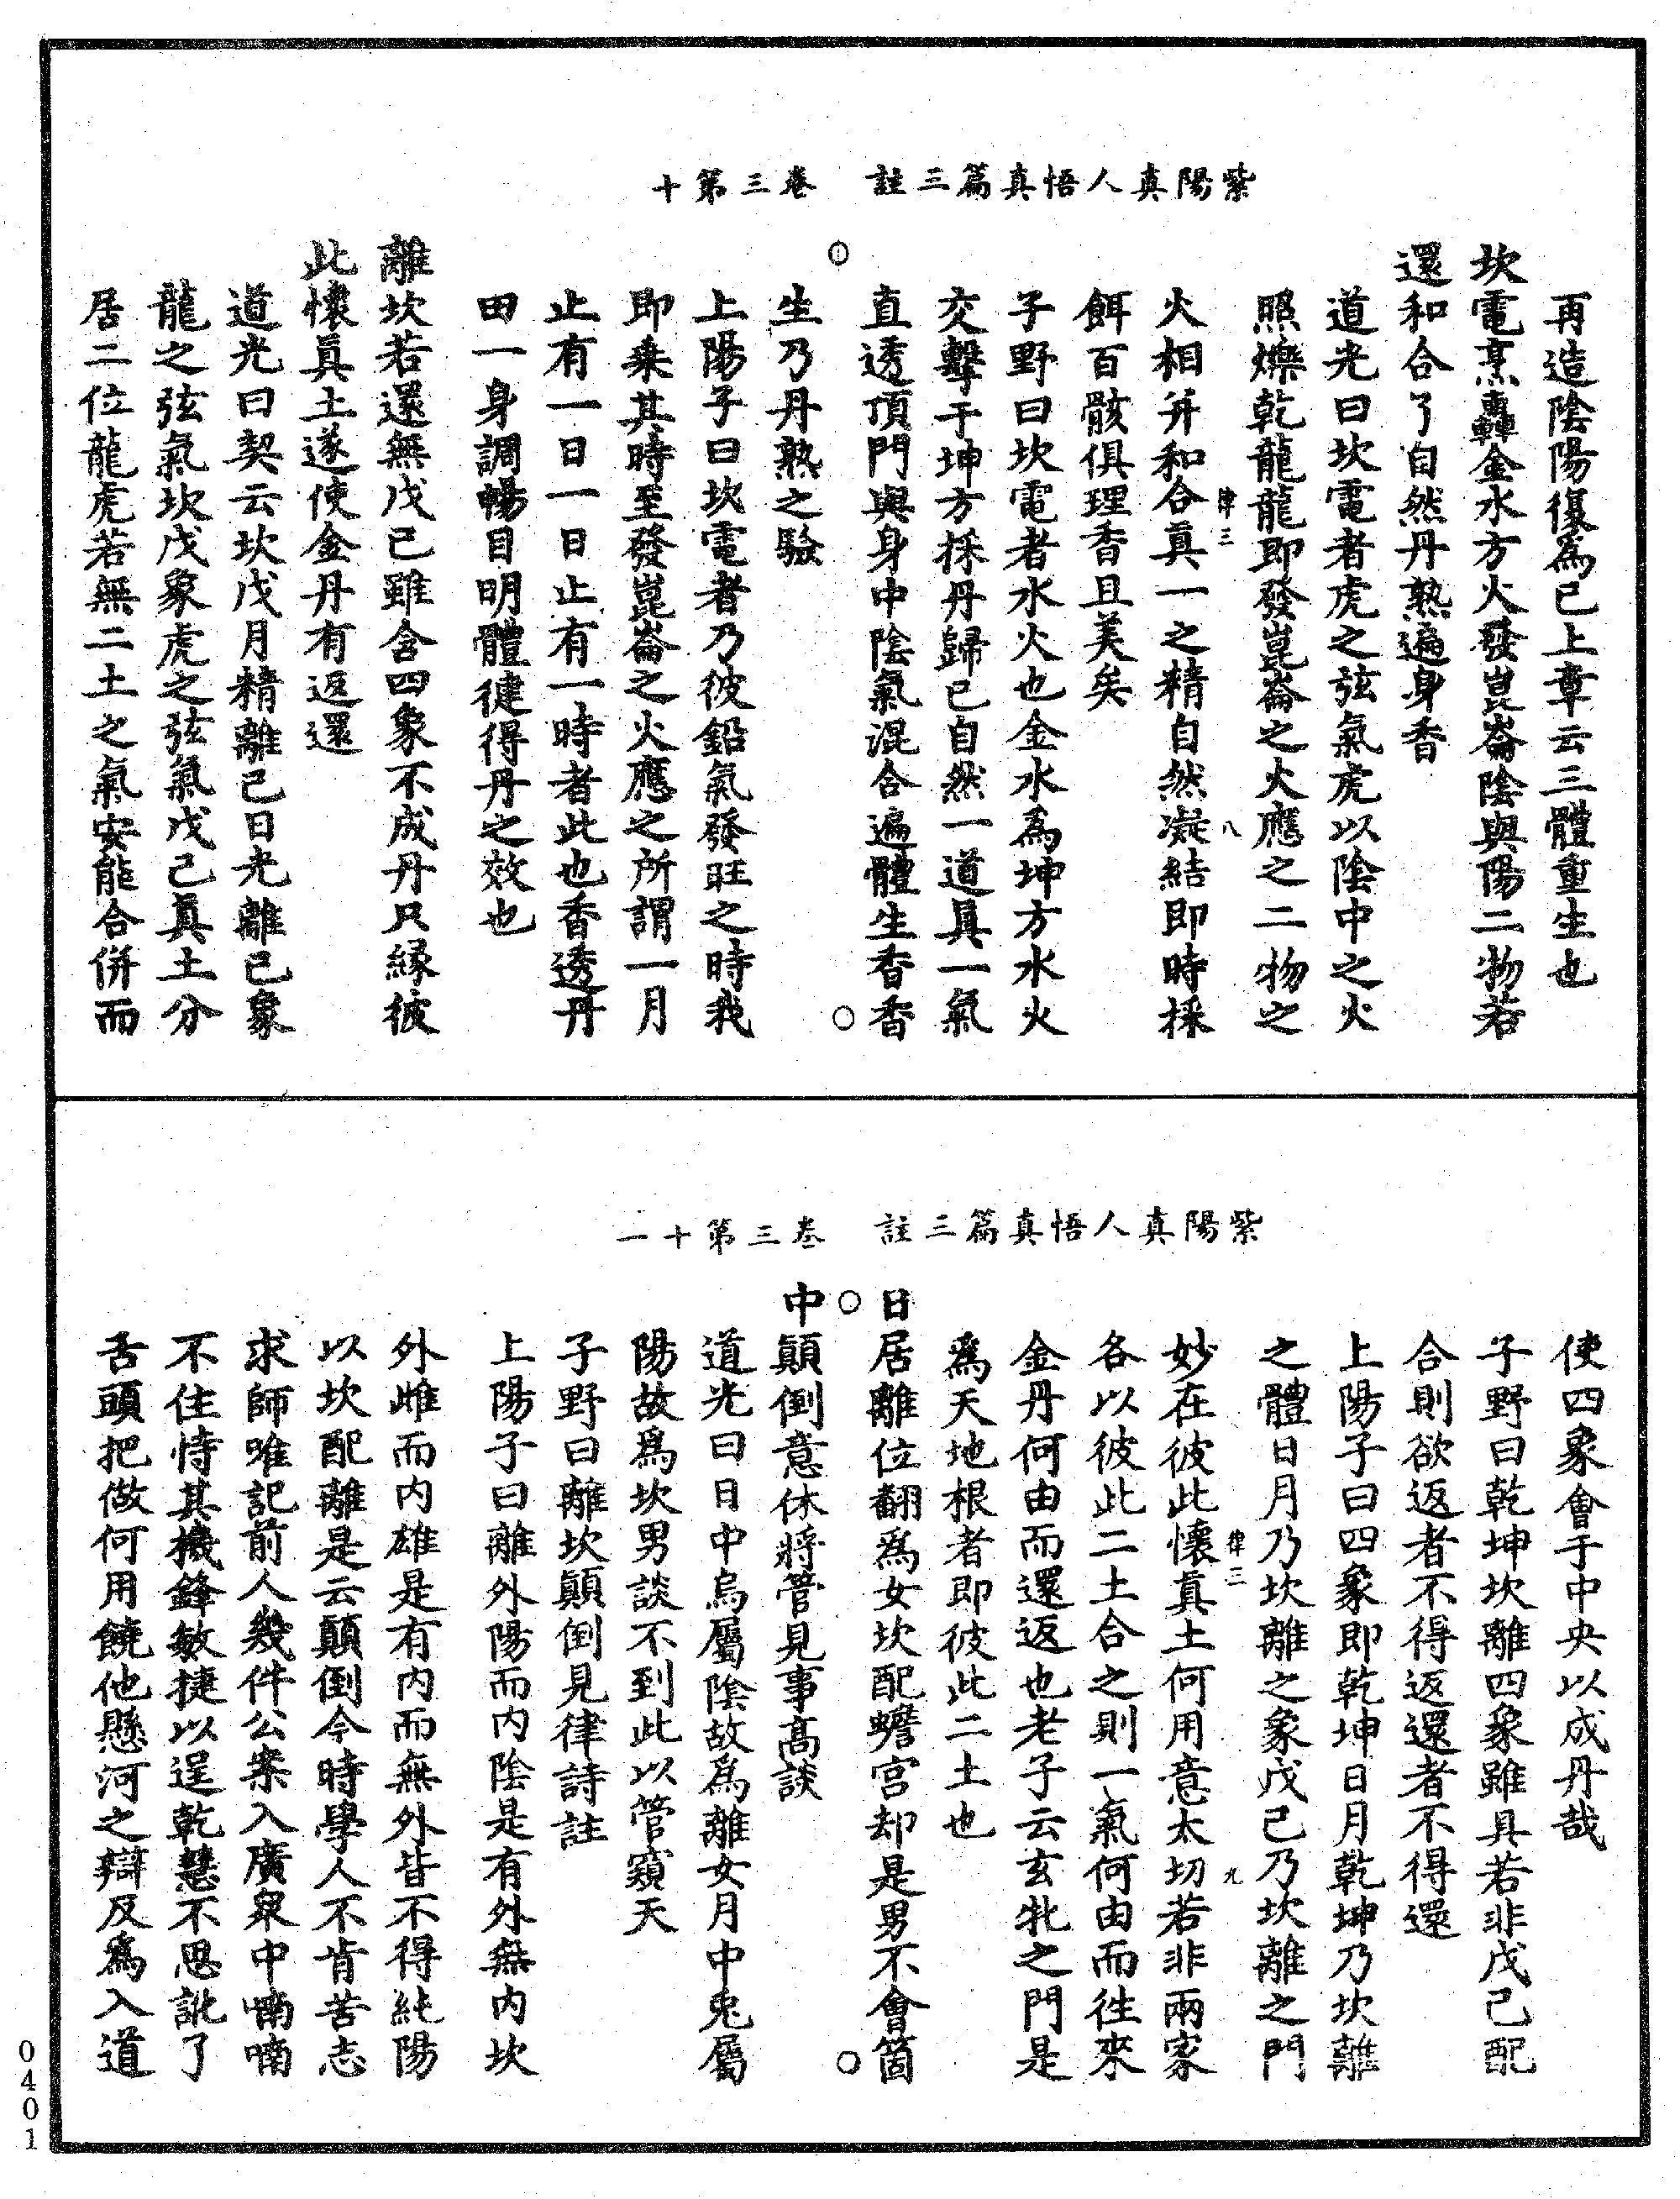 紫陽真人悟真篇三註　卷三第十
再造陰陽復爲己上章云三體重生也
坎電烹轟金水方火發崑崙陰與陽二物若
還和合了自然丹熟遍身香
道光曰坎電者虎之弦氣虎以陰中之火
照爍乾龍龍即發崑崙之火應之二物之
火相并和合真一之精自然凝結即時採
律三　八
餌百骸俱理香且美矣
子野曰坎電者水火也金水爲坤方水火
交擊于坤方採丹歸己自然一道真一氣
直透頂門與身中陰氣混合遍體生香香
生乃丹熟之驗
上陽子曰坎電者乃彼鉛氣發旺之時我
即乘其時至發崑崙之火應之所謂一月
止有一日一日止有一時者此也香透丹
田一身調暢目明體徤得丹之效也
離坎若還無戊己雖含四象不成丹只緣彼
此懷真土遂使金丹有返還
道光曰契云坎戊月精離己日光離己象
龍之弦氣坎戊象虎之弦氣戊己真土分
居二位龍虎若無二土之氣安能合併而
紫陽真人悟真篇三註　卷三第十一
使四象會于中央以成丹哉
子野曰乾坤坎離四象雖具若非戊己配
合則欲返者不得返還者不得還
上陽子曰四象即乾坤日月乾坤乃坎離
之體日月乃坎離之象戊己乃坎離之門
妙在彼此懷真土何用意太切若非兩家
律三　九
各以彼此二土合之則一氣何由而徃來
金丹何由而還返也老子云玄牝之門是
爲天地根者即彼此二土也
日居離位翻爲女坎配蟾宮却是男不會箇
中顛倒意休將管見事高談
道光曰日中烏屬陰故爲離女月中兎屬
陽故爲坎男談不到此以管窺天
子野曰離坎顛倒見律詩註
上陽子曰離外陽而内陰是有外無内坎
外雌而内雄是有内而無外皆不得純陽
以坎配離是云顛倒今時學人不肯苦志
求師唯記前人幾件公案入廣衆中喃喃
不住恃其機鋒敏捷以逞乾慧不思訛了
舌頭把做何用饒他懸河之辯反爲入道
0401